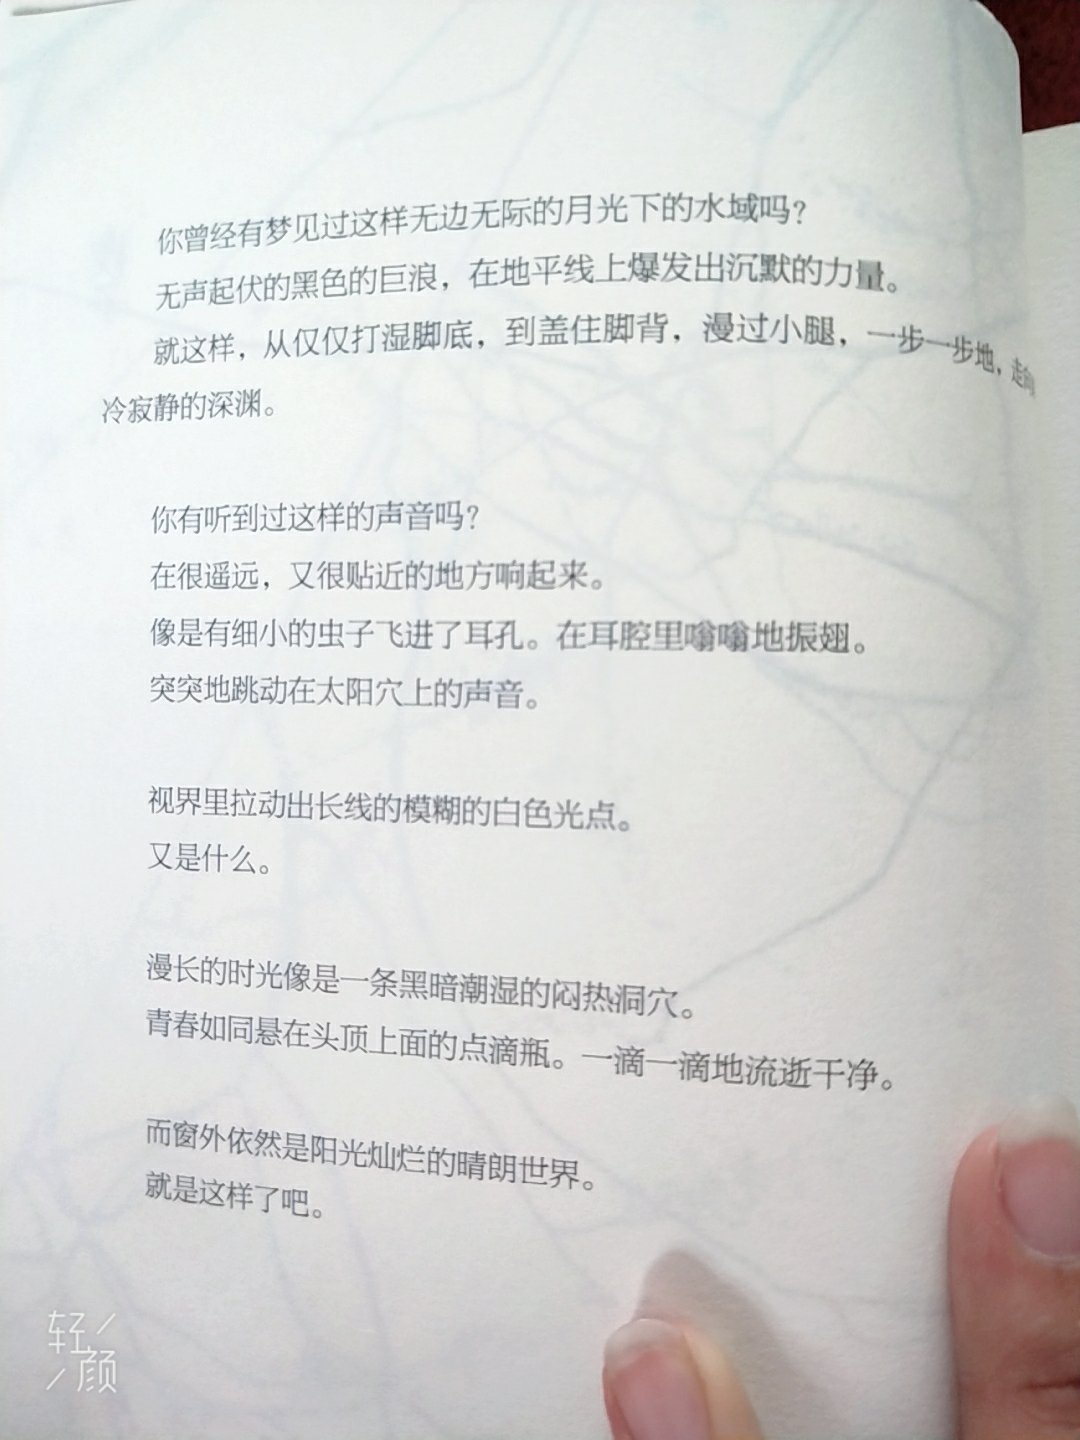 你曾经有梦见过这样无边无际的月光下的水域吗？
无声起伏的黑色的巨浪，在地平线上爆发出沉默的力量。
就这样，从仅仅打湿脚底，到盖住脚背，漫过小腿，一步一步地，走向
冷寂静的深渊。
你有听到过这样的声音吗？
在很遥远，又很贴近的地方响起来。
像是有细小的虫子飞进了耳孔。在耳腔里嗡嗡地振翅。
突突地跳动在太阳穴上的声音。
视界里拉动出长线的模糊的白色光点。
又是什么。
漫长的时光像是一条黑暗潮湿的闷热洞穴。
青春如同悬在头顶上面的点滴瓶。一滴一滴地流逝干净。
而窗外依然是阳光灿烂的晴朗世界。
就是这样了吧。
轻颜